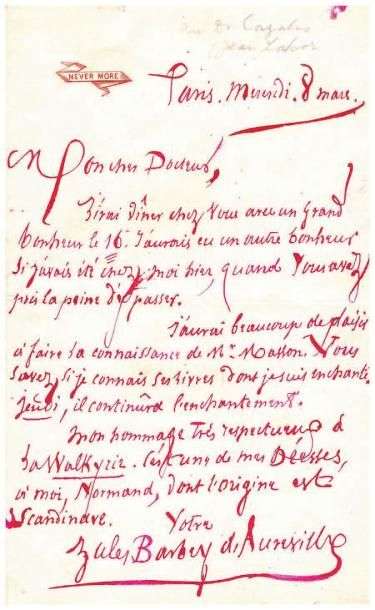 au Dr Cazalis
Jean Lahor
NEVER MORE
Paris. Mercredi. 8 mars.
Mon cher Docteur,
J'irai dîner chez vous avec un grand
bonheur le 16. J'aurais eu un autre bonheur
si j'avais été chez moi hier, quand vous avez
pris la peine d'y passer.
J'aurai beaucoup de plaisir
à faire la connaissance de Mr Masson. Vous
savez si je connais ses livres dont je suis enchanté.
Jeudi, il continûra l'enchantement.
Mon hommage très respectueux à
la Walkyrie. C'est une de mes Déesses,
à moi, Normand, dont l'origine est
Scandinave.
Votre
Jules Barbey d'Aurevilly